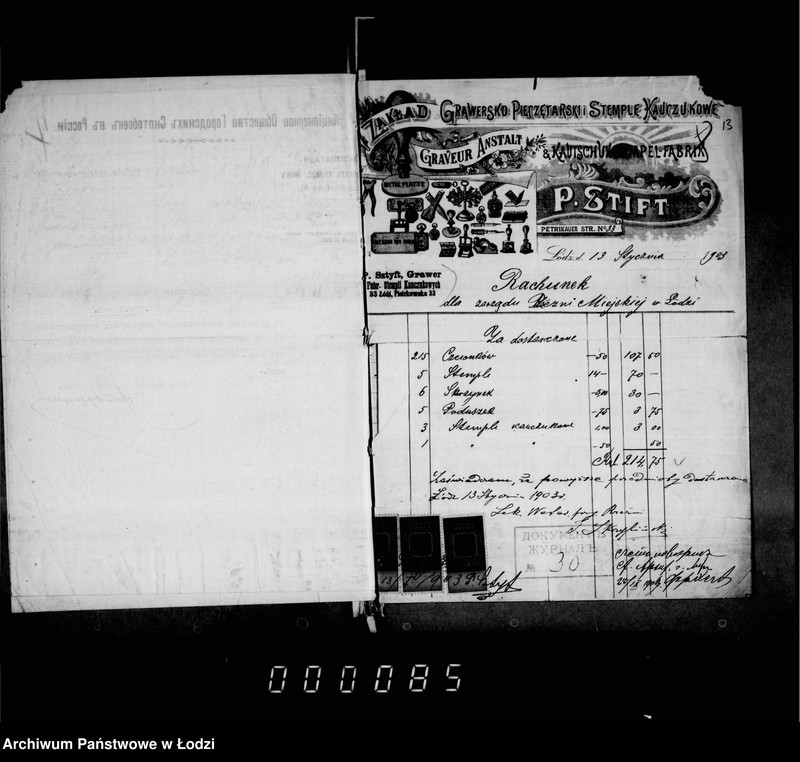 Акціонернаго Общества Городскихъ Скотобоенъ въ Россіи
13
ZAKŁAD GRAWERSKO PIECZĘTARSKI i STEMPLE KAUCZUKOWE
GRAVEUR ANSTALT & KAUTSCHUK STAPEL-FABRIK
METALPLATTE
P. STIFT
PETRIKAUER STR. No 33
Łódź d. 13 Stycznia 1903
P. Sztyft, Grawer
Fabr. Stempli Kauczukowych
33 Łódź, Piotrkowska 33
Rachunek
dla zarządu Rzeźni Miejskiej w Łodzi
Za dostarczone
215 Czcionków —50 107 50
5 Stemple 14— 70 —
6 Skrzynek 30 —
5 Poduszek —75 3 75
3 Stemple kauczukowe 1,00 3 00
1 " " —50 50
Rub. 214,75
Zaświadczam, że powyższe przedmioty dostarczono
Łódź 13 Stycznia 1903 r.
Lek. Weter.
ДОКУМЕНТ
ЖУРНАЛЪ
№ 30
13/I 1903 P. Sztyft
000085
Archiwum Państwowe w Łodzi